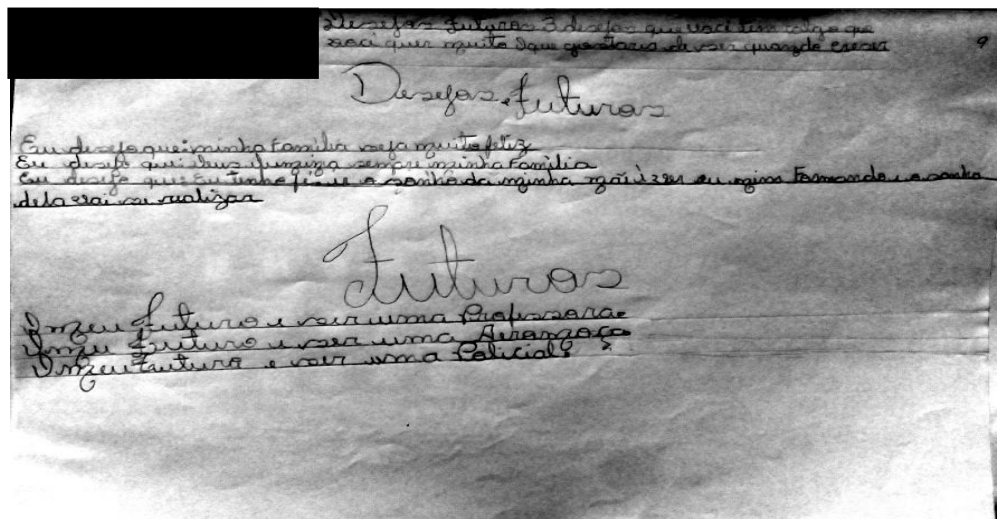 Desejos Futuros 3 desejos que você tem algo que
você quer muito O que gostaria de ser quando crescer
9
Desejos Futuros
Eu desejo que minha Familia seja muito feliz
Eu desejo que Deus sempre minha Familia
Eu desejo que Eu tenho o sonho da minha mãe ver eu mims Formando e o sonho
dela vai se realizar
Futuros
O meu Futuro e ser uma Professora.
O meu Futuro e ser uma Aeromoça
O meu Futuro e ser uma Policial.